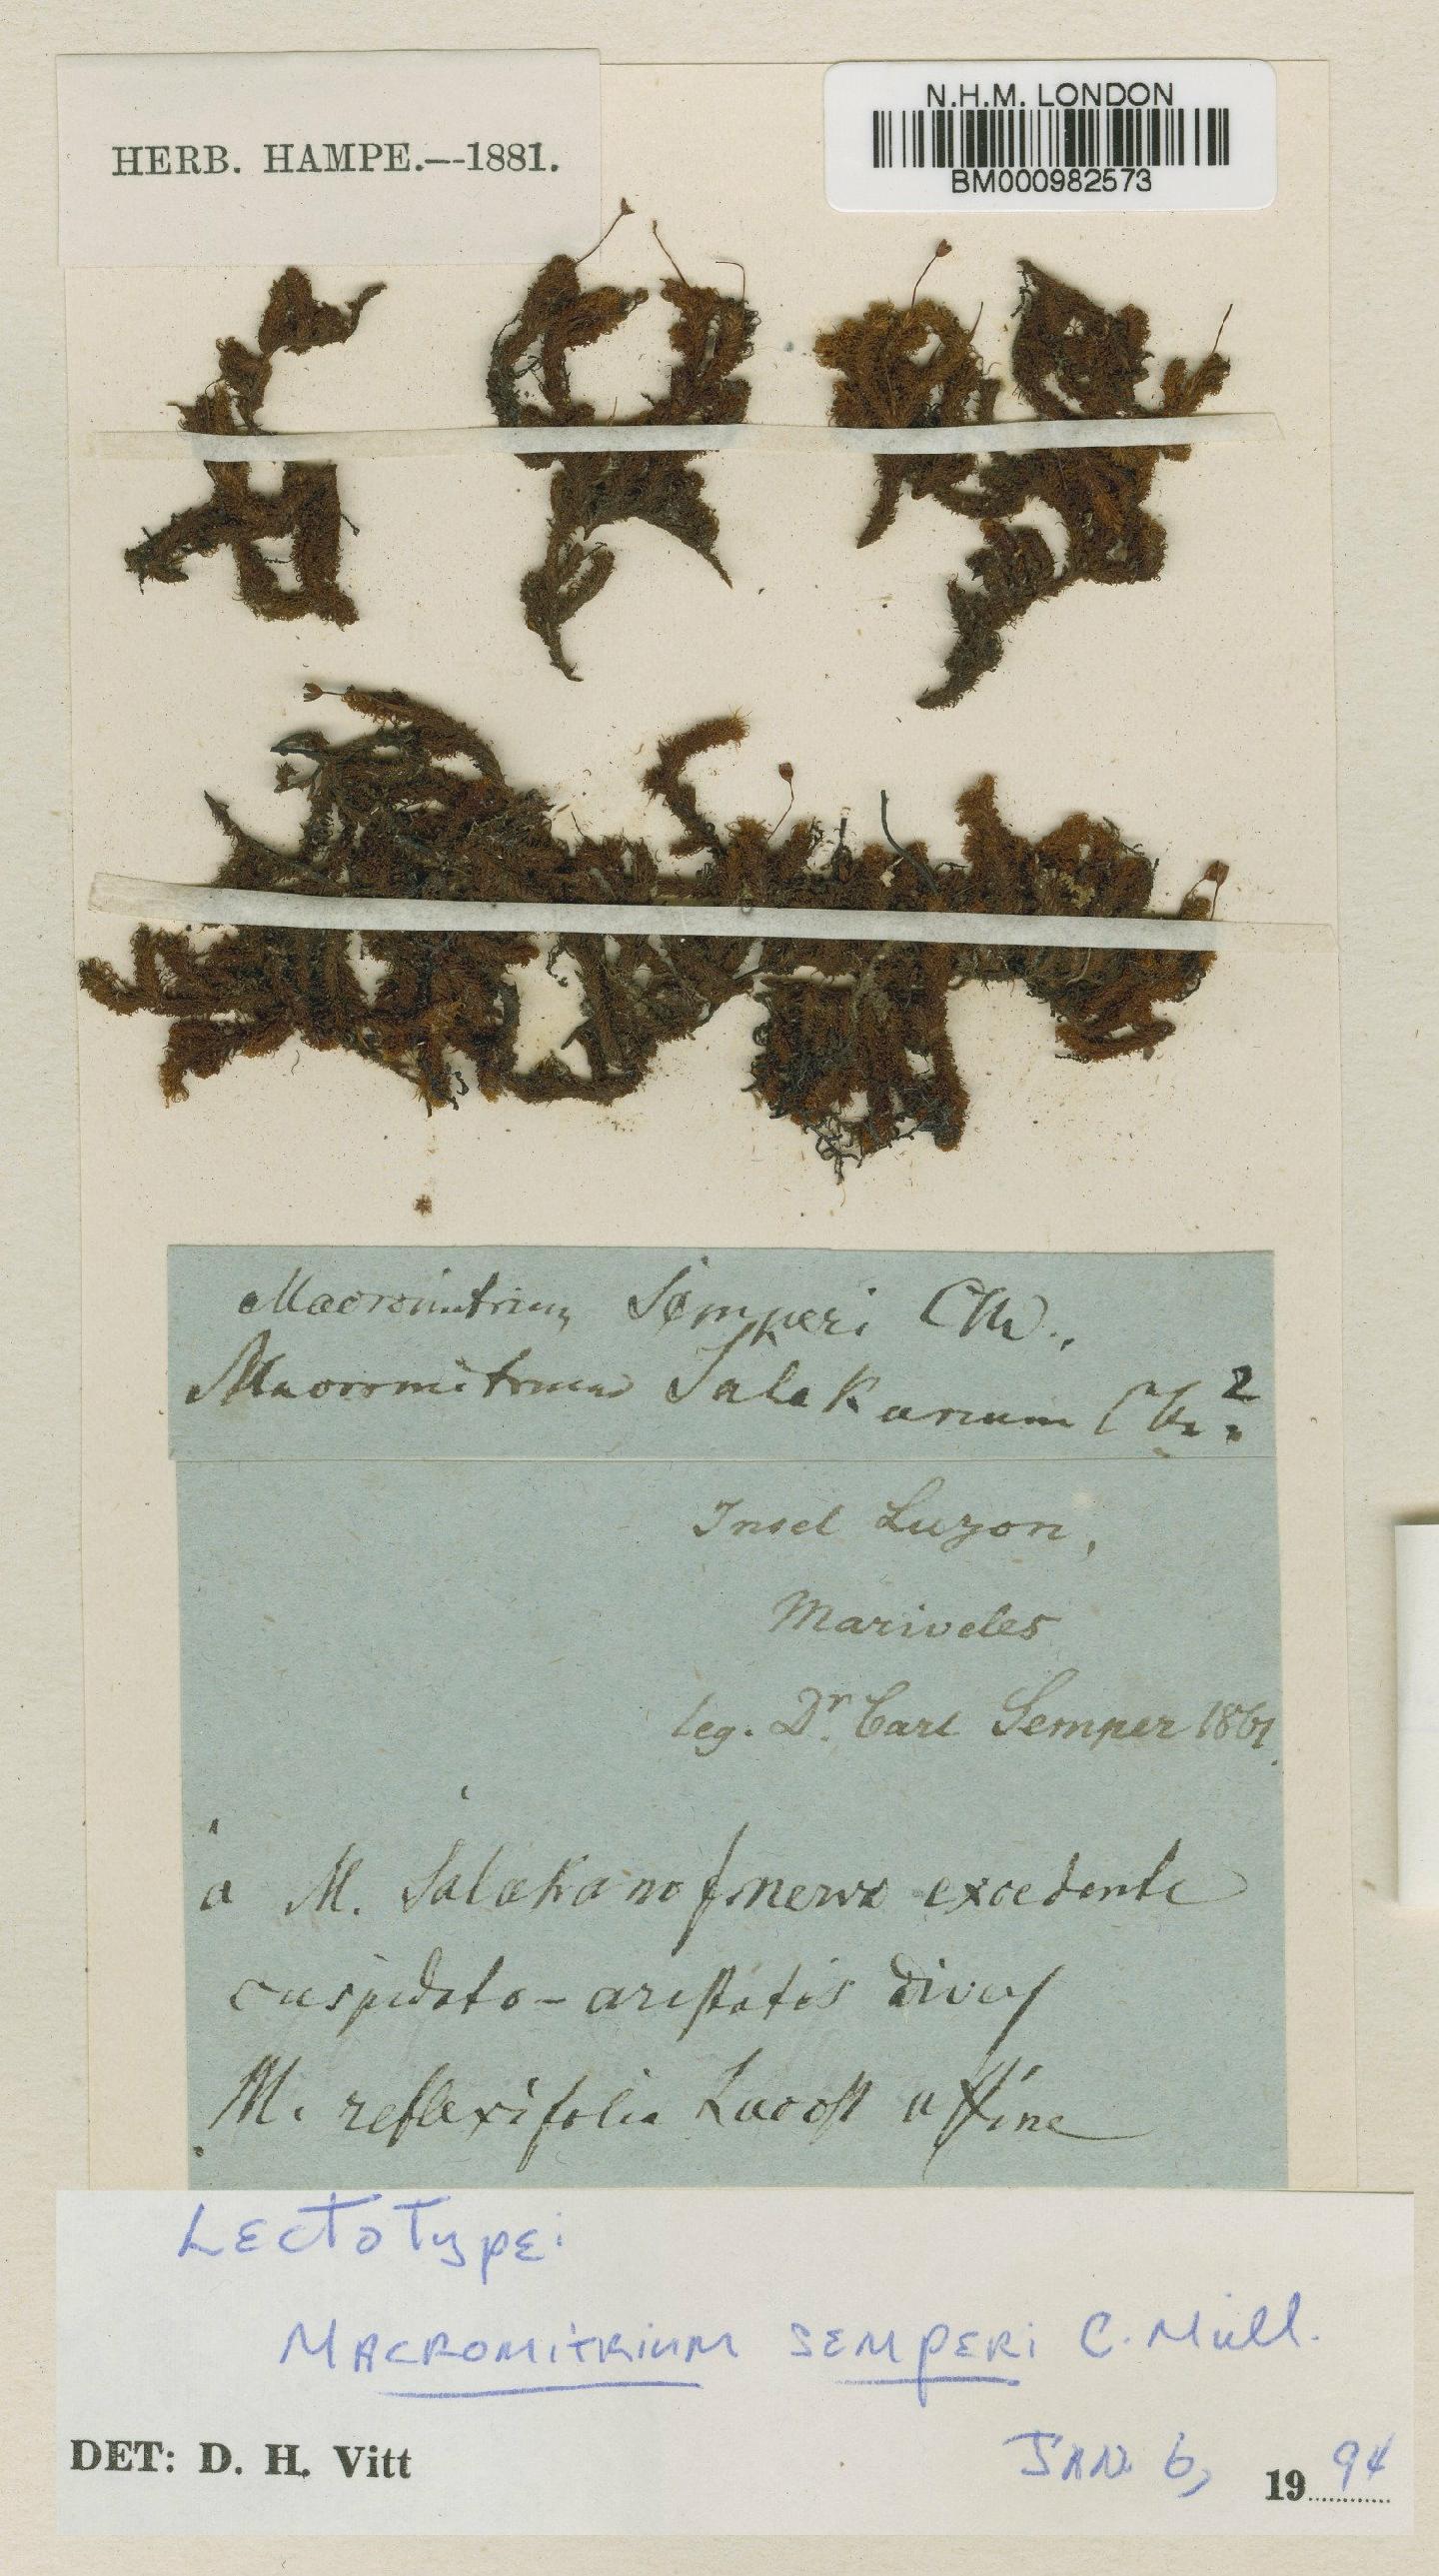 HERB. HAMPE.—1881.
N.H.M. LONDON
BM000982573
Macromitrium Semperi CM.,
Macromitrium Salakanum CM?
Insel Luzon,
Mariveles
leg. Dr. Carl Semper 1861.
a M. Salakano f. nervo excedente
cuspidato-aristatis
M. reflexifolia Lacost affine
Lectotype:
Macromitrium semperi C. Müll.
DET: D. H. Vitt
JAN. 6, 1994